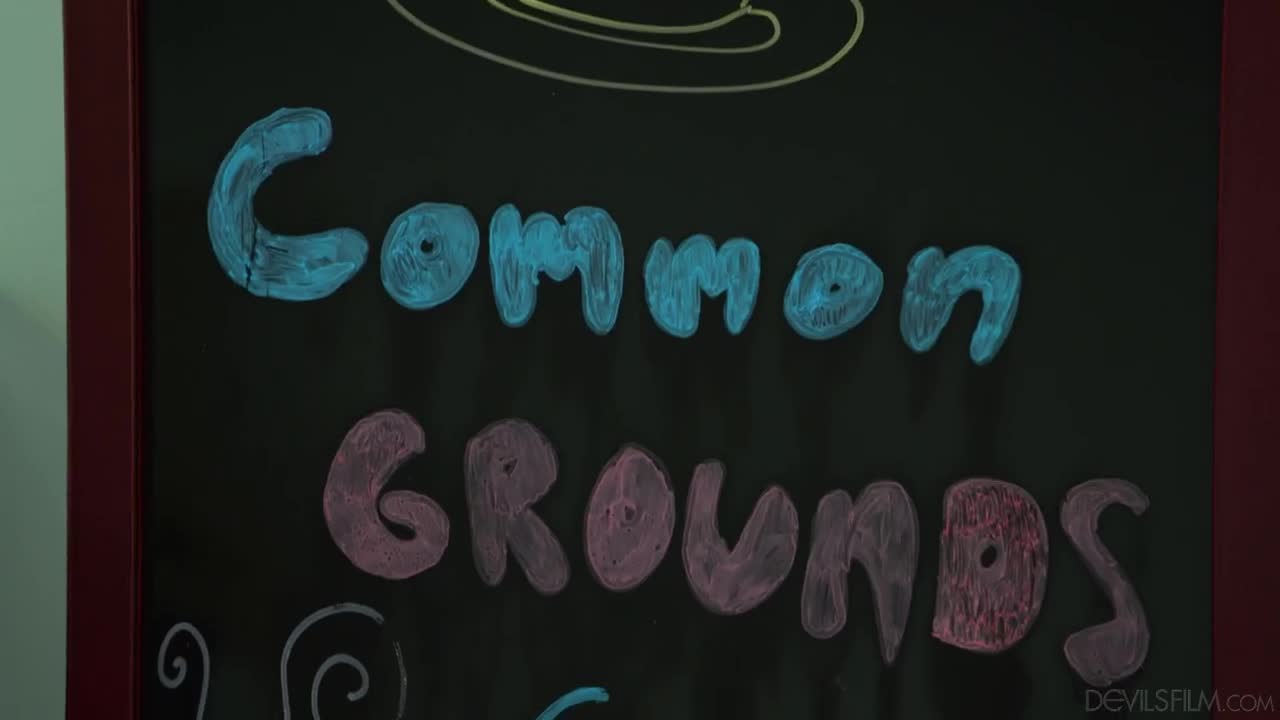 Common
GROUNDS
DEVILSFILM.COM